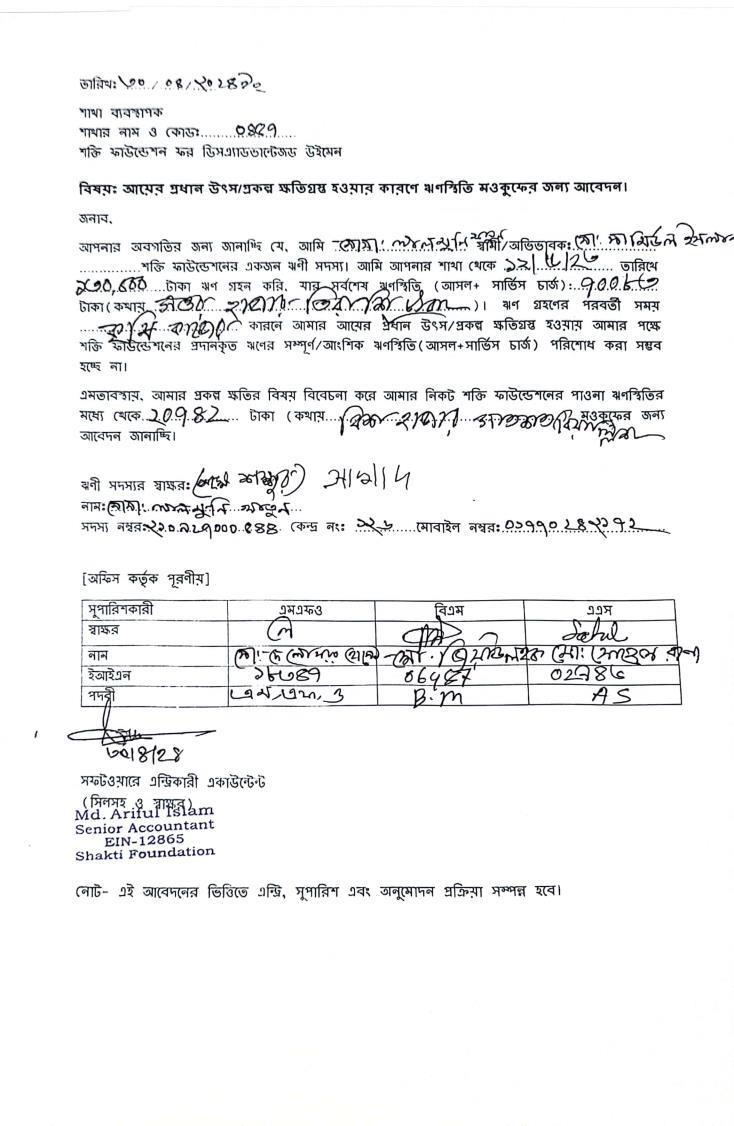 তারিখ: ৩০/০৪/২০২৪ ইং
শাখা ব্যবস্থাপক
শাখার নাম ও কোডঃ 
শক্তি ফাউন্ডেশন ফর ডিসএ্যাডভান্টেজড উইমেন
বিষয়ঃ আয়ের প্রধান উৎস/প্রকল্প ক্ষতিগ্রস্থ হওয়ার কারণে ঋণস্থিতি মওকুফের জন্য আবেদন।
জনাব,
আপনার অবগতির জন্য জানাচ্ছি যে, আমি মোছাঃ স্বামী/অভিভাবক: মোঃ ইসলাম
শক্তি ফাউন্ডেশনের একজন ঋণী সদস্য। আমি আপনার শাখা থেকে তারিখে
টাকা ঋণ গ্রহন করি, যার সর্বশেষ ঋণস্থিতি (আসল+ সার্ভিস চার্জ):
টাকা (কথায় সত্তর হাজার তিরাশি টাকা)। ঋণ গ্রহণের পরবর্তী সময়
কৃষি কাজের কারনে আমার আয়ের প্রধান উৎস/প্রকল্প ক্ষতিগ্রস্ত হওয়ায় আমার পক্ষে
শক্তি ফাউন্ডেশনের প্রদানকৃত ঋণের সম্পূর্ণ/আংশিক ঋণস্থিতি (আসল+সার্ভিস চার্জ) পরিশোধ করা সম্ভব
হচ্ছে না।
এমতাবস্থায়, আমার প্রকল্প ক্ষতির বিষয় বিবেচনা করে আমার নিকট শক্তি ফাউন্ডেশনের পাওনা ঋণস্থিতির
মধ্যে থেকে ২০৭৪২ টাকা (কথায় বিশ হাজার সাতশত বিয়াল্লিশ মওকুফের জন্য
আবেদন জানাচ্ছি।
ঋণী সদস্যর স্বাক্ষর:
নাম: মোছাঃ খাতুন
সদস্য নম্বর: কেন্দ্র নং: ১২৬ মোবাইল নম্বর:
[অফিস কর্তৃক পূরণীয়]
সুপারিশকারী এমএফও বিএম এএস
স্বাক্ষর
নাম মোঃ মোঃ মোঃ সোহেল রানা
ইআইএন ১৮৩৪৭ 02786
পদবী এম.এফ.ও B.M AS
৩০/৪/২৪
সফটওয়ারে এন্ট্রিকারী একাউন্টেন্ট
(সিলসহ ও স্বাক্ষর)
Md. Ariful Islam
Senior Accountant
EIN-12865
Shakti Foundation
নোট- এই আবেদনের ভিত্তিতে এন্ট্রি, সুপারিশ এবং অনুমোদন প্রক্রিয়া সম্পন্ন হবে।